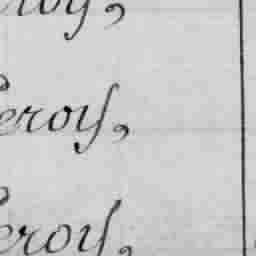 eroy,
eroy,
eroy,